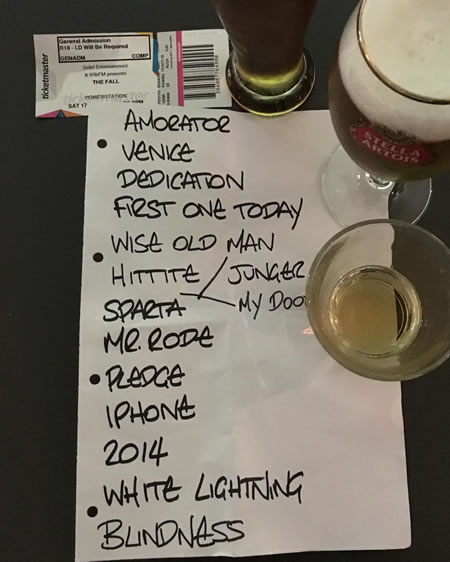 General Admission
R18 - I.D Will Be Required
GENADM COMP
Solid Entertainment
& 95bFM presents
THE FALL
POWERSTATION
SAT 17
ticketmaster
ticketmaster
STELLA
ARTOIS
AMORATOR
VENICE
DEDICATION
FIRST ONE TODAY
WISE OLD MAN
HITTITE JUNGER
SPARTA MY DOO
MR. RODE
PLEDGE
IPHONE
2014
WHITE LIGHTNING
BLINDNESS